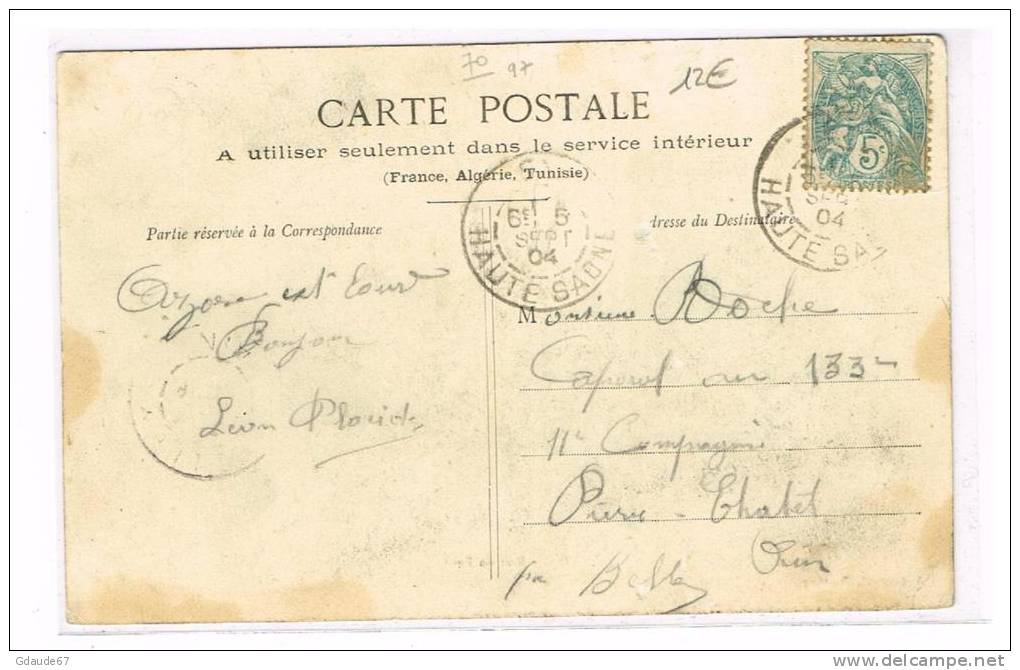 70
97
12€
CARTE POSTALE
A utiliser seulement dans le service intérieur
(France, Algérie, Tunisie)
Partie réservée à la Correspondance
dresse du Destinataire
5c
SEPT
04
HAUTE SAONE
04
HAUTE SA
Bonjour
Léon
Monsieur Roche
Caporal au 133
11e Compagnie
Pierre-Chatel
par Belley Ain
Gdaude67
www.delcampe.net